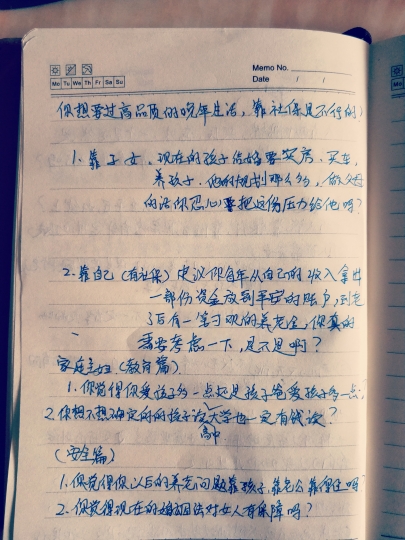 Memo No.
Mo Tu We Th Fr Sa Su
Date / /
你想要过高品质的晚年生活，靠社保是不行的）
1、靠子女，现在的孩子结婚要买房、买车，
养孩子．他的规划那么多，做父母
的话你忍心要把这份压力给他吗？
2、靠自己（有社保）建议你每年从自己的收入拿出
一部份资金放到平安的账户，到老
了后有一笔可观的养老金，你真的
需要考虑一下，是不是啊？
家庭主妇．（教育篇）
1、你觉得你爱孩子多一点还是孩子爸爱孩子多一点，
2、你想不想确定的的孩子读大学也一定有钱读？
高中
（安全篇）
1、你觉得你以后的养老问题靠孩子，靠老公靠得住吗
2、你觉得现在的婚姻法对女人有保障吗？